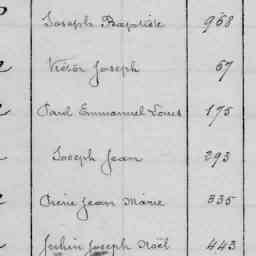 Joseph Baptiste 968
Victor Joseph 67
Paul Emmanuel Louis 175
Joseph Jean 293
Pierre Jean Marie 335
Joseph Noël 443